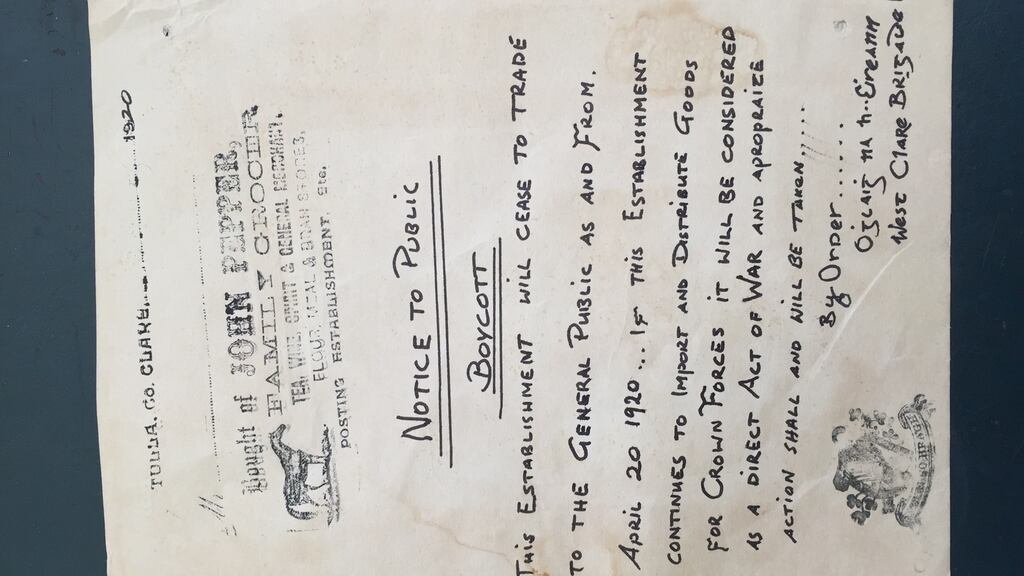 TULLA, CO. CLARE, 1920
M
Bought of JOHN PEPPER,
FAMILY GROCER
TEA, WINE, SPIRIT & GENERAL MERCHANT,
FLOUR, MEAL & BRAN STORES,
POSTING ESTABLISHMENT, Etc.
NOTICE TO PUBLIC
BOYCOTT
THIS ESTABLISHMENT WILL CEASE TO TRADE
TO THE GENERAL PUBLIC AS AND FROM.
APRIL 20 1920... IF THIS ESTABLISHMENT
CONTINUES TO IMPORT AND DISTRIBUTE GOODS
FOR CROWN FORCES IT WILL BE CONSIDERED
AS A DIRECT ACT OF WAR AND APROPRAIZE
ACTION SHALL AND WILL BE TAKEN,
By ORDER.......
Oglaiġ na h-Éireann
WEST CLARE BRIGADE